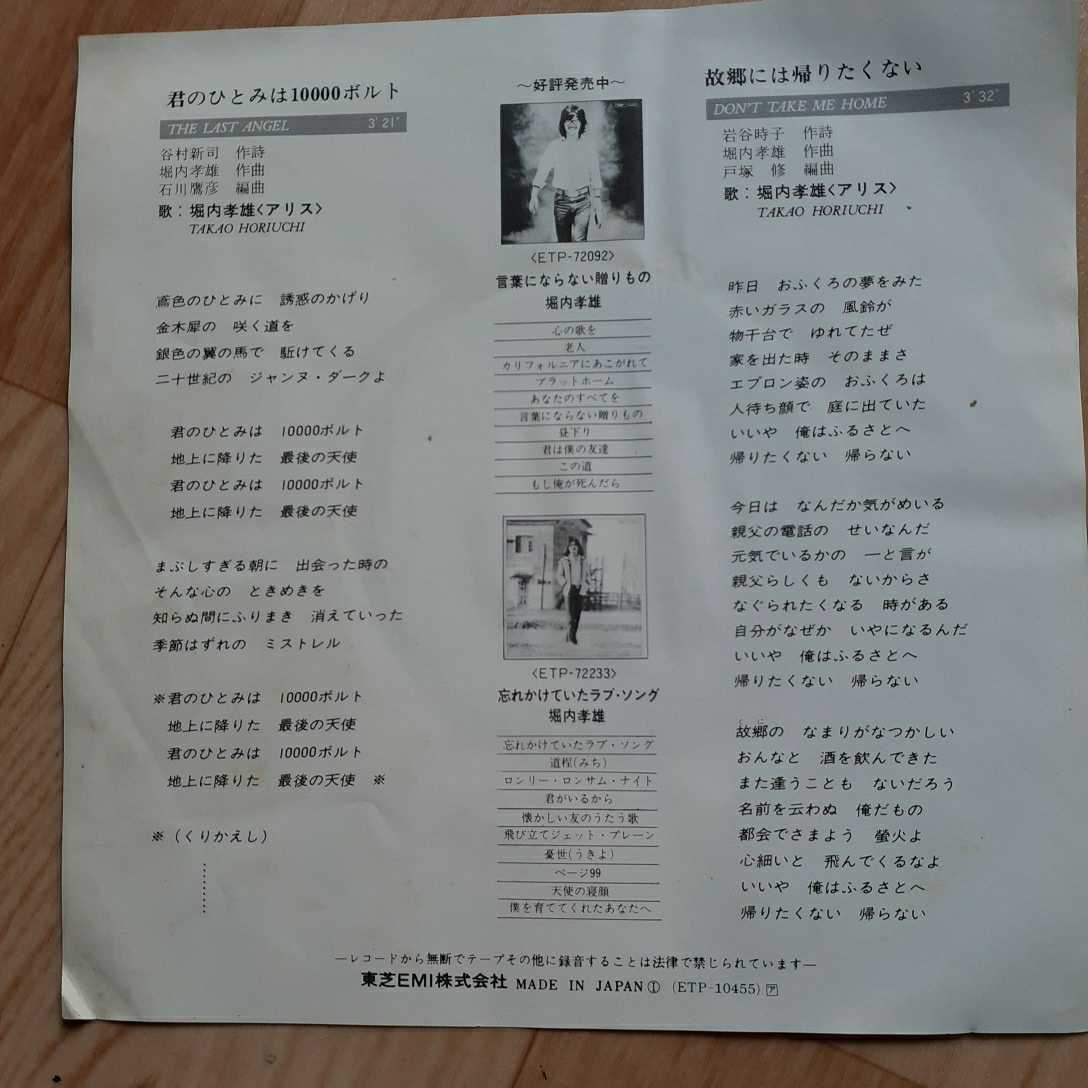 君のひとみは10000ボルト
THE LAST ANGEL 3'21"
谷村新司 作詩
堀内孝雄 作曲
石川鷹彦 編曲
歌：堀内孝雄〈アリス〉
TAKAO HORIUCHI
鳶色のひとみに 誘惑のかげり
金木犀の 咲く道を
銀色の翼の馬で 駈けてくる
二十世紀の ジャンヌ・ダークよ
君のひとみは 10000ボルト
地上に降りた 最後の天使
君のひとみは 10000ボルト
地上に降りた 最後の天使
まぶしすぎる朝に 出会った時の
そんな心の ときめきを
知らぬ間にふりまき 消えていった
季節はずれの ミストレル
※君のひとみは 10000ボルト
地上に降りた 最後の天使
君のひとみは 10000ボルト
地上に降りた 最後の天使 ※
※（くりかえし）
〜好評発売中〜
〈ETP-72092〉
言葉にならない贈りもの
堀内孝雄
心の歌を
老人
カリフォルニアにあこがれて
プラットホーム
あなたのすべてを
言葉にならない贈りもの
昼下り
君は僕の友達
この道
もし俺が死んだら
〈ETP-72233〉
忘れかけていたラブ・ソング
堀内孝雄
忘れかけていたラブ・ソング
道程(みち)
ロンリー・ロンサム・ナイト
君がいるから
懐かしい友のうたう歌
飛び立てジェット・プレーン
憂世(うきよ)
ページ99
天使の寝顔
僕を育ててくれたあなたへ
故郷には帰りたくない
DON'T TAKE ME HOME 3'32"
岩谷時子 作詩
堀内孝雄 作曲
戸塚 修 編曲
歌：堀内孝雄〈アリス〉
TAKAO HORIUCHI
昨日 おふくろの夢をみた
赤いガラスの 風鈴が
物干台で ゆれてたぜ
家を出た時 そのままさ
エプロン姿の おふくろは
人待ち顔で 庭に出ていた
いいや 俺はふるさとへ
帰りたくない 帰らない
今日は なんだか気がめいる
親父の電話の せいなんだ
元気でいるかの 一と言が
親父らしくも ないからさ
なぐられたくなる 時がある
自分がなぜか いやになるんだ
いいや 俺はふるさとへ
帰りたくない 帰らない
故郷の なまりがなつかしい
おんなと 酒を飲んできた
また逢うことも ないだろう
名前を云わぬ 俺だもの
都会でさまよう 螢火よ
心細いと 飛んでくるなよ
いいや 俺はふるさとへ
帰りたくない 帰らない
―レコードから無断でテープその他に録音することは法律で禁じられています―
東芝EMI株式会社 MADE IN JAPAN Ⓘ (ETP-10455) ア